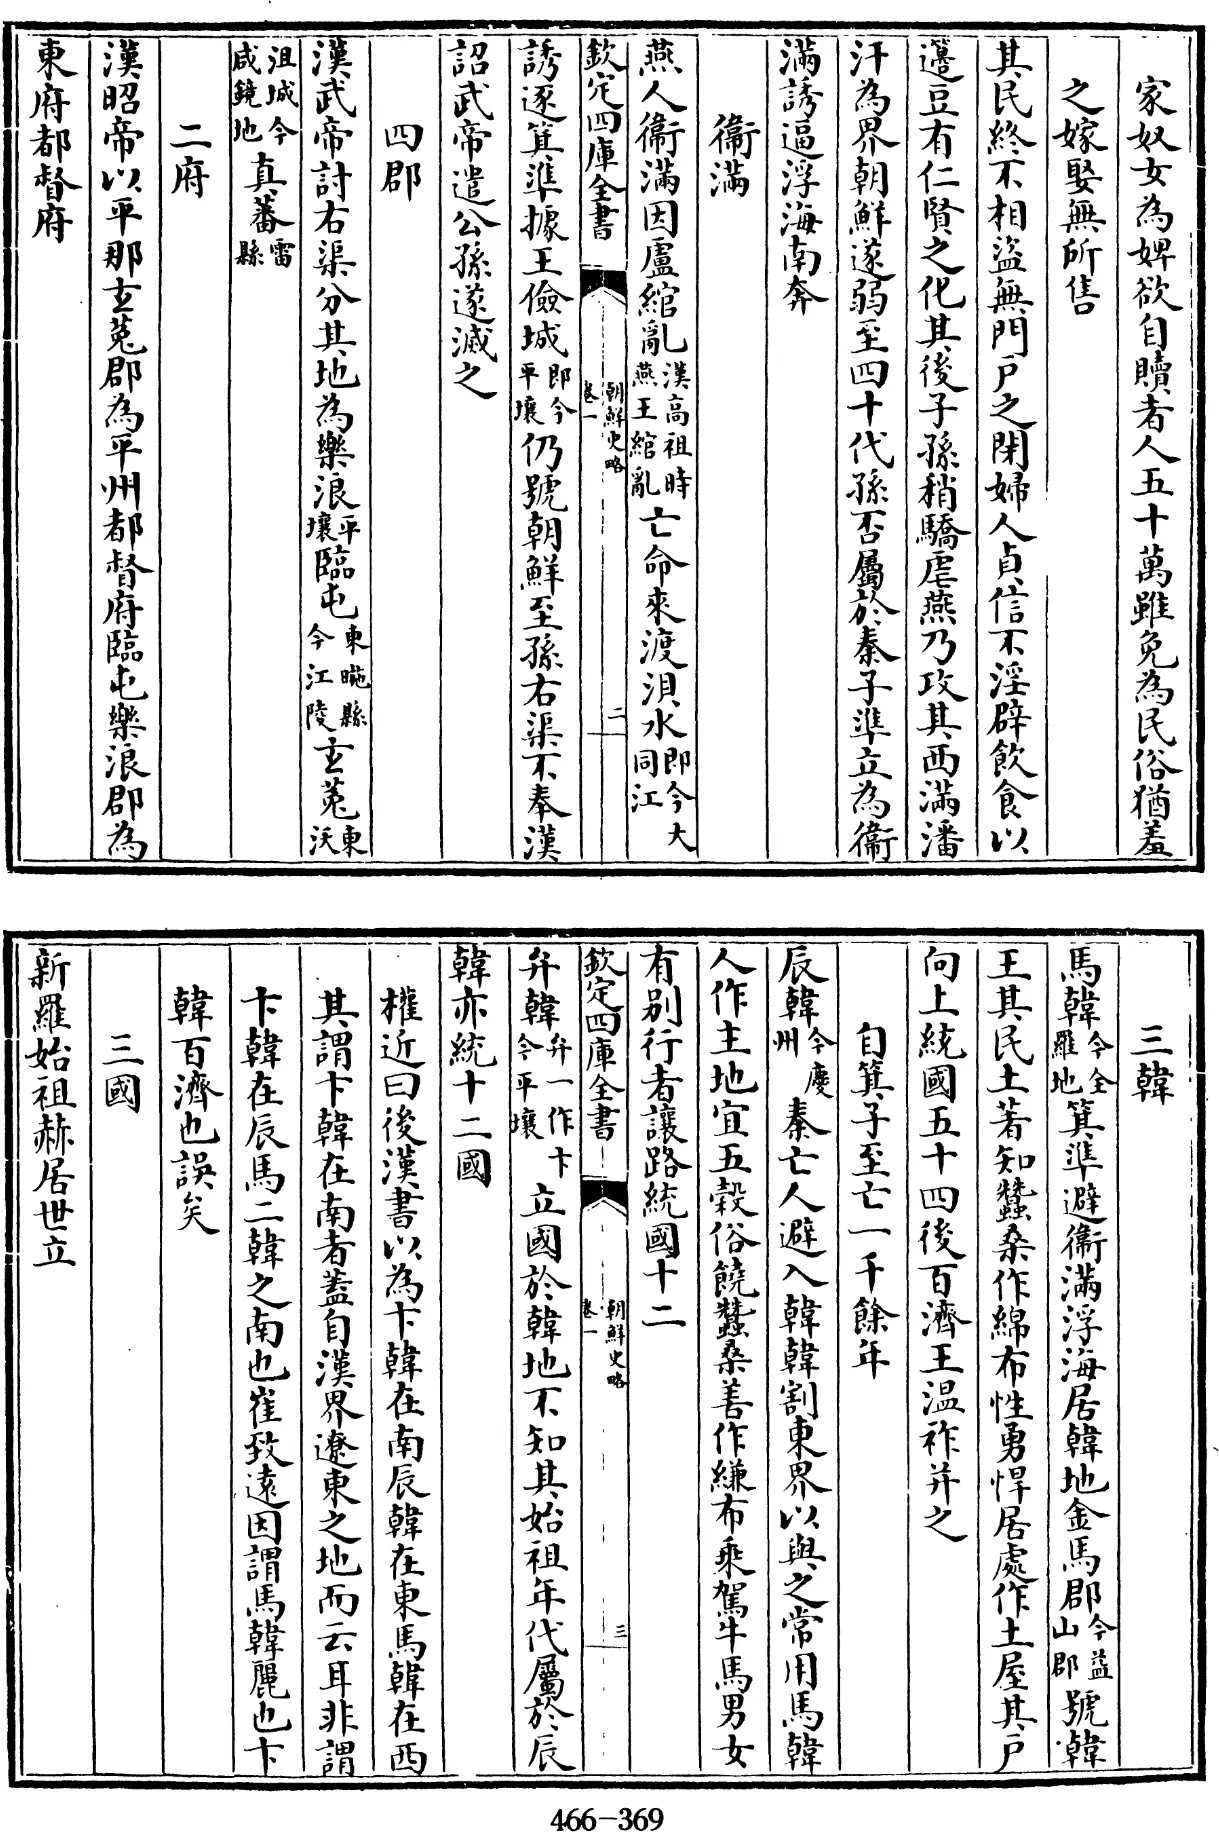 家奴女為婢欲自贖者人五十萬雖免為民俗猶羞
之嫁娶無所售
其民終不相盜無門戶之閉婦人貞信不淫辟飲食以
籩豆有仁賢之化其後子孫稍驕虐燕乃攻其西滿潘
汗為界朝鮮遂弱至四十代孫否屬於秦子準立為衞
滿誘逼浮海南奔
衞滿
燕人衞滿因盧綰亂漢高祖時燕王綰亂亡命來渡浿水即今大同江
欽定四庫全書 朝鮮史略 卷一 二
誘逐箕準據王儉城即今平壤仍號朝鮮至孫右渠不奉漢
詔武帝遣公孫遂滅之
四郡
漢武帝討右渠分其地為樂浪平壤臨屯東暆縣今江陵玄菟東沃
沮城今咸鏡地真蕃霅縣
二府
漢昭帝以平那玄菟郡為平州都督府臨屯樂浪郡為
東府都督府
三韓
馬韓今全羅地箕準避衞滿浮海居韓地金馬郡今益山郡號韓
王其民土著知蠶桑作綿布性勇悍居處作土屋其戶
向上統國五十四後百濟王溫祚并之
自箕子至亡一千餘年
辰韓今慶州秦亡人避入韓韓割東界以與之常用馬韓
人作主地宜五穀俗饒蠶桑善作縑布乘駕牛馬男女
有別行者讓路統國十二
欽定四庫全書 朝鮮史略 卷一 三
弁韓弁一作卞今平壤立國於韓地不知其始祖年代屬於辰
韓亦統十二國
權近曰後漢書以為卞韓在南辰韓在東馬韓在西
其謂卞韓在南者蓋自漢界遼東之地而云耳非謂
卞韓在辰馬二韓之南也崔致遠因謂馬韓麗也卞
韓百濟也誤矣
三國
新羅始祖赫居世立
466-369